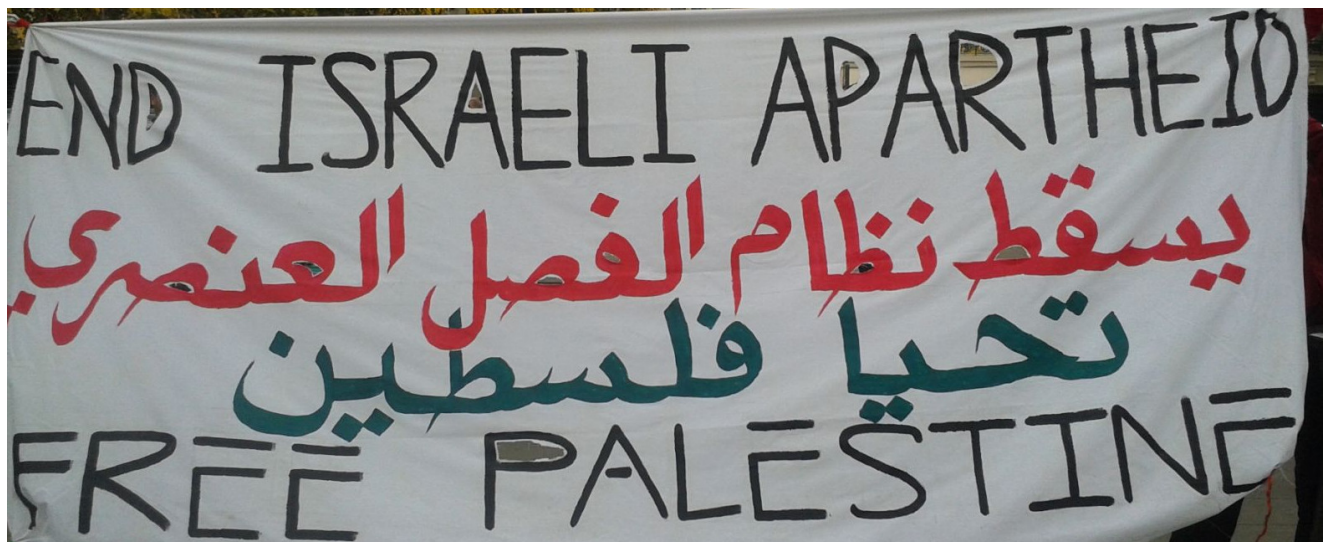 END ISRAELI APARTHEID
يسقط نظام الفصل العنصري
تحيا فلسطين
FREE PALESTINE